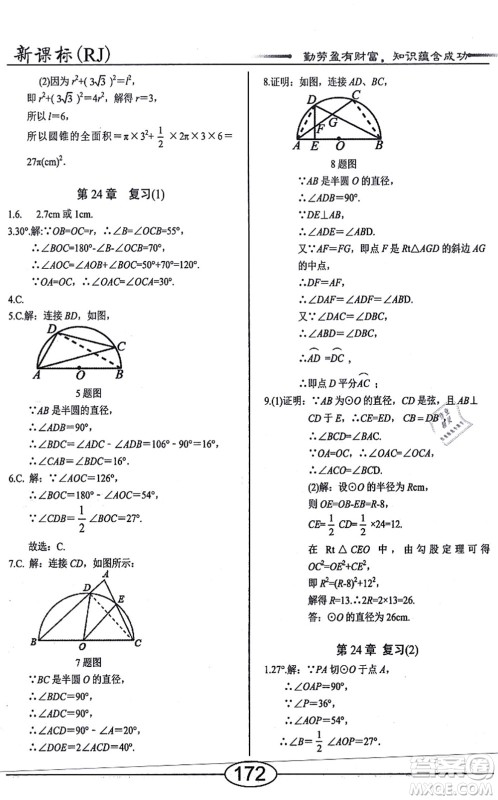 新课标(RJ)
勤劳盈有财富，知识蕴含成功
(2)因为 r²+( 3√3 )²=l²，
即 r²+( 3√3 )²=4r²，解得 r=3，
所以 l=6，
所以圆锥的全面积=π×3²+1/2×2π×3×6=
27π(cm)².
第 24 章 复习(1)
1.6. 2.7cm 或 1cm.
3.30°.解:∵OB=OC=r，∴∠B=∠OCB=55°，
∴∠BOC=180°-∠B-∠BCO=70°，
∴∠AOC=∠AOB+∠BOC=50°+70°=120°.
∵OA=OC，∴∠OAC=∠OCA=30°.
4.C.
5.C.解：连接 BD，如图，
D
C
A O B
5 题图
∵AB 是半圆的直径，
∴∠ADB=90°，
∴∠BDC=∠ADC－∠ADB=126°－90°=36°，
∴∠BAC=∠BDC=36°.
6.C. 解：∵∠AOC=126°，
∴∠BOC=180°－∠AOC=54°，
∵∠CDB=1/2∠BOC=27°.
故选：C.
7.C. 解：连接 CD，如图所示：
A
D
E
B O C
7 题图
∵BC 是半圆的直径，
∴∠BDC=90°，
∴∠ADC=90°，
∴∠ACD=90°－∠A=20°，
∴∠DOE=2∠ACD=40°，
8.证明：如图，连接 AD、BC，
D C
F G
A E O B
8 题图
∵AB 是半圆 O 的直径，
∴∠ADB=90°.
∵DE⊥AB，
∴∠ADE=∠ABD，
又∵AF=FG，即点 F 是 Rt△AGD 的斜边 AG
的中点，
∴DF=AF，
∴∠DAF=∠ADF=∠ABD，
又∵∠DAC=∠DBC，
∴∠ABD=∠DBC，
∴AD=DC，
∴即点 D 平分AC；
9.(1)证明：∵AB 为⊙O 的直径，CD 是弦，且 AB⊥
CD 于 E，∴CE=ED， CB=DB，
∴∠BCD=∠BAC，
∵OA=OC，∴∠OAC=∠OCA，
∴∠ACO=∠BCD.
(2)解：设⊙O 的半径为 Rcm，
则 OE=OB-EB=R-8，
CE=1/2 CD=1/2×24=12.
在 Rt△CEO 中，由勾股定理可得
OC²=OE²+CE²，
即 R²=(R-8)²+12²，
解得 R=13.∴2R=2×13=26.
答：⊙O 的直径为 26cm.
第 24 章 复习(2)
1.27°.解：∵PA 切⊙O 于点 A，
∴∠OAP=90°，
∴∠AOP=90°－∠P=54°，
∴∠B=1/2∠AOP=27°.
172
答案圈
MXQE.COM